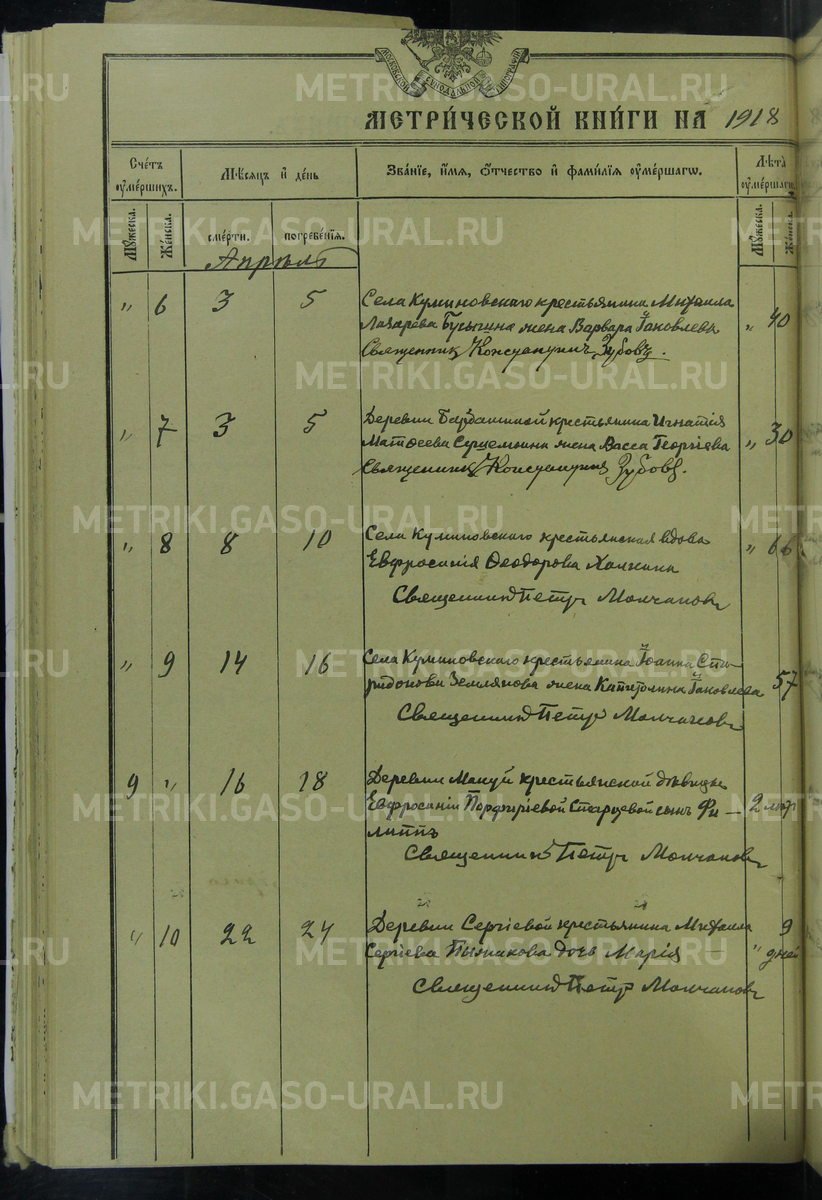 МЕТРИ́ЧЕСКОЙ КНИ́ГИ НА 1918
Сче́тъ оуме́ршихъ.
Мѣ́сяцъ и де́нь
Зва́нїе, и́мя, о́тчество и фами́лїя оуме́ршагѡ.
Лѣ́та оуме́ршагѡ
Му́жеска.
Же́нска.
сме́рти.
погребе́нїя.
Му́жеска.
Же́нска.
Апрѣль
" 6 3 5 Села Куминовскаго крестьянина Михаила " 40
Лазарева Бусыгина жена Варвара Іаковлева
Священникъ Константинъ Зубовъ.
" 7 3 5 Деревни крестьянина Игнатія " 30
Матѳеева жена Васса Георгіева
Священникъ Константинъ Зубовъ.
" 8 8 10 Села Куминовскаго крестьянская вдова " 66
Евфросинія Ѳеодорова
Священникъ Петръ Молчановъ
" 9 14 16 Села Куминовскаго крестьянина Іоанна Спи-
ридонова Землякова жена Капитолина Іаковлева 57
Священникъ Петръ Молчановъ
9 " 16 18 Деревни Мануй крестьянской дѣвицы
Евфросиніи Порфиріевой Старцевой сынъ Фи- 2
липпъ
Священникъ Петръ Молчановъ
" 10 22 24 Деревни Сергіевой крестьянина Михаила 9
Сергіева Пыжикова дочь Марія " дней
Священникъ Петръ Молчановъ
METRIKI.GASO-URAL.RU